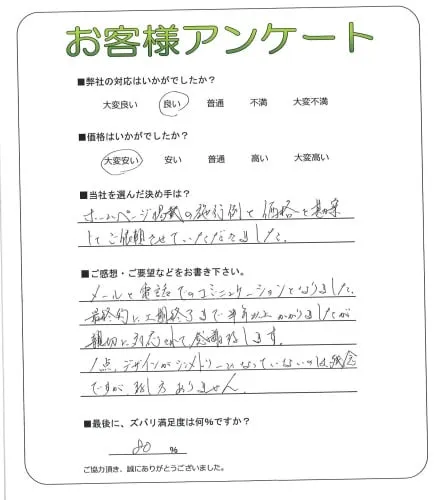 お客様アンケート
■弊社の対応はいかがでしたか？
大変良い 良い 普通 不満 大変不満
■価格はいかがでしたか？
大変安い 安い 普通 高い 大変高い
■当社を選んだ決め手は？
ホームページ掲載の施行例と価格を勘案
してご依頼させていただきました。
■ご感想・ご要望などをお書き下さい。
メールと電話でのコミニュケーションとなりました。
最終的に工期終了まで半年以上かかりましたが
親切に対応されて感謝致します。
1点、デザインがシンメトリーになっていないのは残念
ですが 致し方ありません。
■最後に、ズバリ満足度は何%ですか？
80 %
ご協力頂き、誠にありがとうございました。